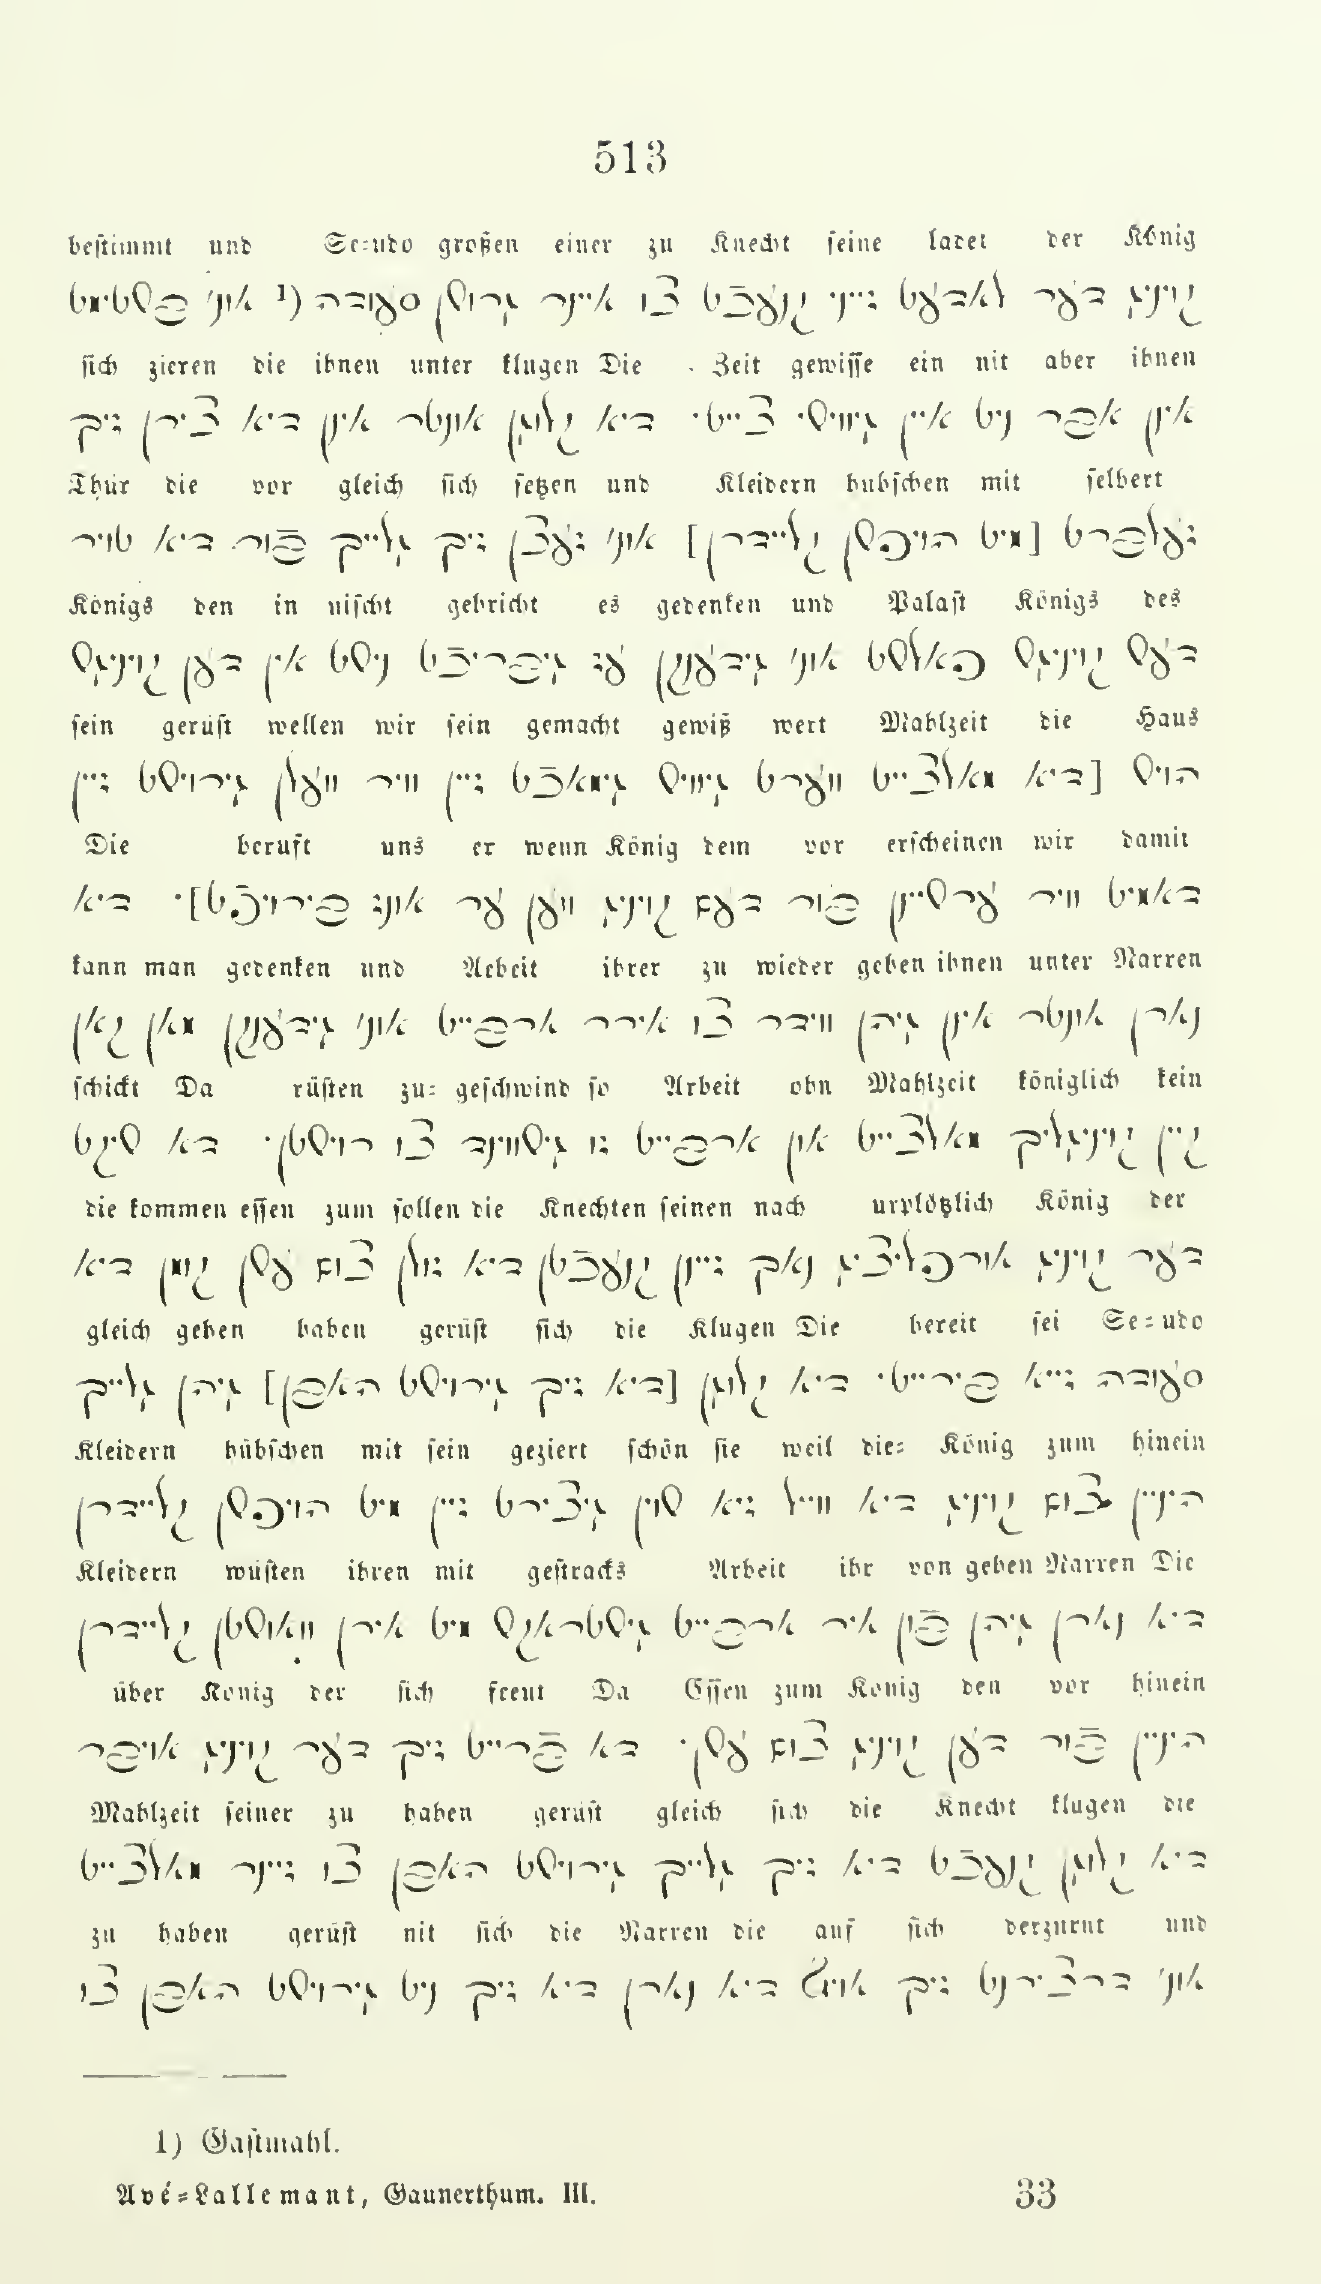 513
beſtimmt und Se=udo großen einer zu Knecht ſeine ladet der König
קויניג דער לאדעט זייני קנעכֿט צו איינר גרושן סעודה (1 אוני' פשטימט
ſich zieren die ihnen unter klugen Die Zeit gewiſſe ein nit aber ihnen
אין אבר ניט איין גיוויש צייט· דיא קלוגן אונטר אין דיא צירן זיך
Thür die vor gleich ſich ſetzen und Kleidern hubſchen mit ſelbert
זעלברט [מיט הויפשן קליידרן] אוני' זעצן זיך גלייך פֿור דיא טויר
Königs den in niſcht gebricht es gedenken und Palaſt Königs des
דעש קויניגש פאלשט אוני' גידענקן עז גיבריכֿט נישט אין דען קויניגש
ſein gerüſt wellen wir ſein gemacht gewiß wert Mahlzeit die Haus
הויש [דיא מאלצייט ווערט גיוויש גימאכֿט זיין וויר וועלן גירוישט זיין
Die beruft uns er wenn König dem vor erſcheinen wir damit
דאמיט וויר ערשיין פֿור דעם קויניג ווען ער אונז בירויפֿט]· דיא
kann man gedenken und Aebeit ihrer zu wieder gehen ihnen unter Narren
נארן אונטר אין גיהן ווידר צו אירר ארבייט אוני' גידענקן מאן קאן
ſchickt Da rüſten zu= geſchwind ſo Arbeit ohn Mahlzeit königlich kein
קיין קויניגליך מאלצייט און ארבייט זו גישווינד צו רוישטן· דא שיקט
die kommen eſſen zum ſollen die Knechten ſeinen nach urplötzlich König der
דער קויניג אורפליציג נאך זיינן קנעכֿטן דיא זולן צום עשן קומן דיא
gleich gehen haben gerüſt ſich die Klugen Die bereit ſei Se=udo
סעודה זייא בירייט· דיא קלוגן [דיא זיך גירוישט האבן] גיהן גלייך
Kleidern hübſchen mit ſein geziert ſchön ſie weil die= König zum hinein
היניין צום קויניג דיא ווייל זיא שוין גיצירט זיין מיט הויפשן קליידרן
Kleidern wüſten ihren mit geſtracks Arbeit ihr von gehen Narren Die
דיא נארן גיהן פֿון איר ארבייט גישטראקש מיט אירן וואושטן קליידרן
über König der ſich freut Da Eſſen zum König den vor hinein
היניין פֿור דען קויניג צום עשן· דא פֿרייט זיך דער קויניג אויבר
Mahlzeit ſeiner zu haben gerüſt gleich ſich die Knecht klugen die
דיא קלוגן קנעכֿט דיא זיך גלייך גירוישט האבן צו זיינר מאלצייט
zu haben gerüſt nit ſich die Narren die auf ſich derzurnt und
אוני' דרצירנט זיך אויף דיא נארן דיא זיך ניט גירוישט האבן צו
1) Gaſtmahl.
Avé=Lallemant, Gaunerthum. III. 33